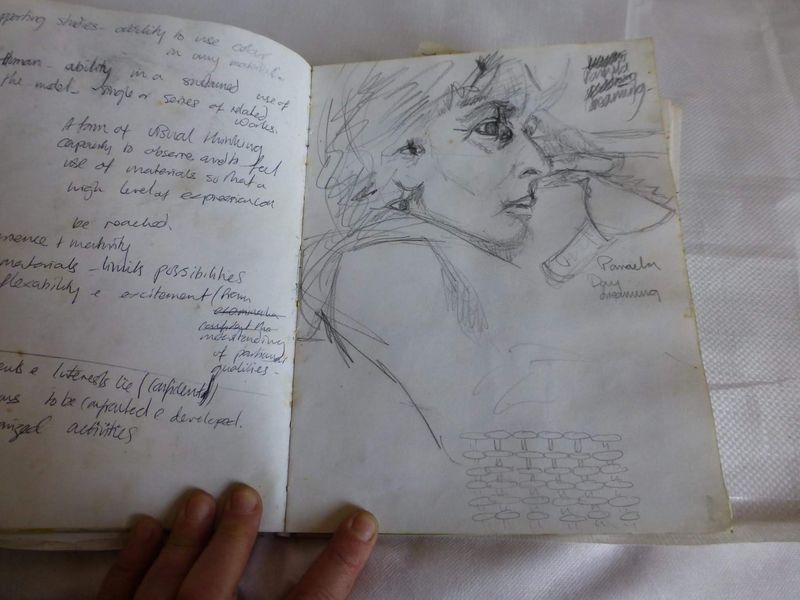 pporting studies - ability to use colour
in any material -
Human - ability in a sustained use of
the model - single or series of related
works.
A form of visual thinking
capacity to observe and to feel
use of materials so that a
high level of expression can
be reached.
rience + maturity
materials - limits possibilities
flexability & excitement (from
understanding
of particular
qualities -
ents & Interests lie (confidently)
to be confronted & developed.
nized activities
Pamela
Day
dreaming